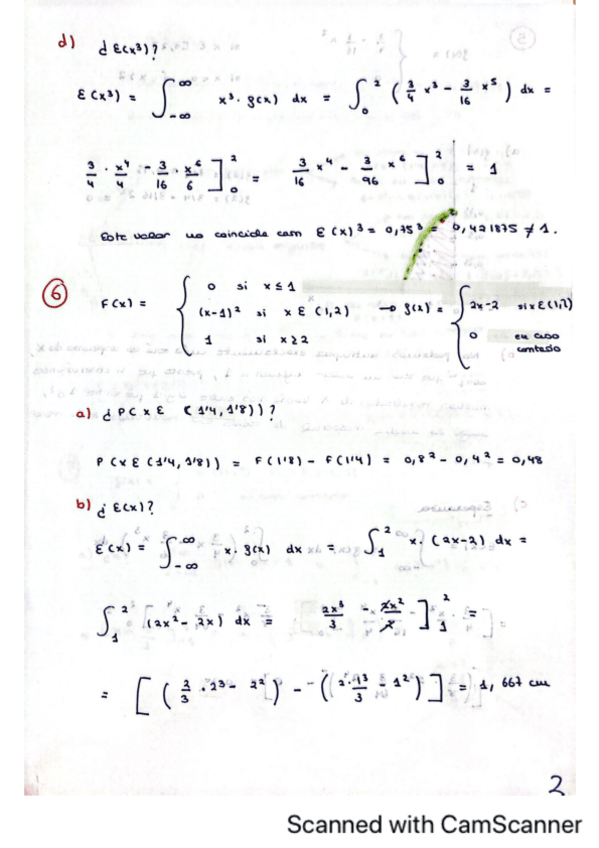 d) ¿ E(x³)?
E(x³) = ∫_{-∞}^{∞} x³ · f(x) dx = ∫_0^2 (3/4 x³ - 3/16 x⁵) dx =
3/4 · x⁴/4 - 3/16 · x⁶/6 ]_0^2 = 3/16 x⁴ - 3/96 x⁶ ]_0^2 = 1
Este valor no coincide con E(x)³ = 0,75³ = 0,421875 ≠ 1.
6
F(x) = { 0 si x ≤ 1
(x-1)² si x ε (1,2)
1 si x ≥ 2
→ f(x) = { 2x-2 si x ε (1,2)
0 en caso contrario
a) ¿ P(x ε (1'4, 1'8))?
P(x ε (1'4, 1'8)) = F(1'8) - F(1'4) = 0,8² - 0,4² = 0,48
b) ¿ E(x)?
E(x) = ∫_{-∞}^{∞} x · f(x) dx = ∫_1^2 x · (2x-2) dx =
∫_1^2 (2x² - 2x) dx = 2x³/3 - 2x²/2 ]_1^2 =
= [ (2/3 · 2³ - 2²) - (2·1³/3 - 1²) ] = 1,667 cm
2
Scanned with CamScanner